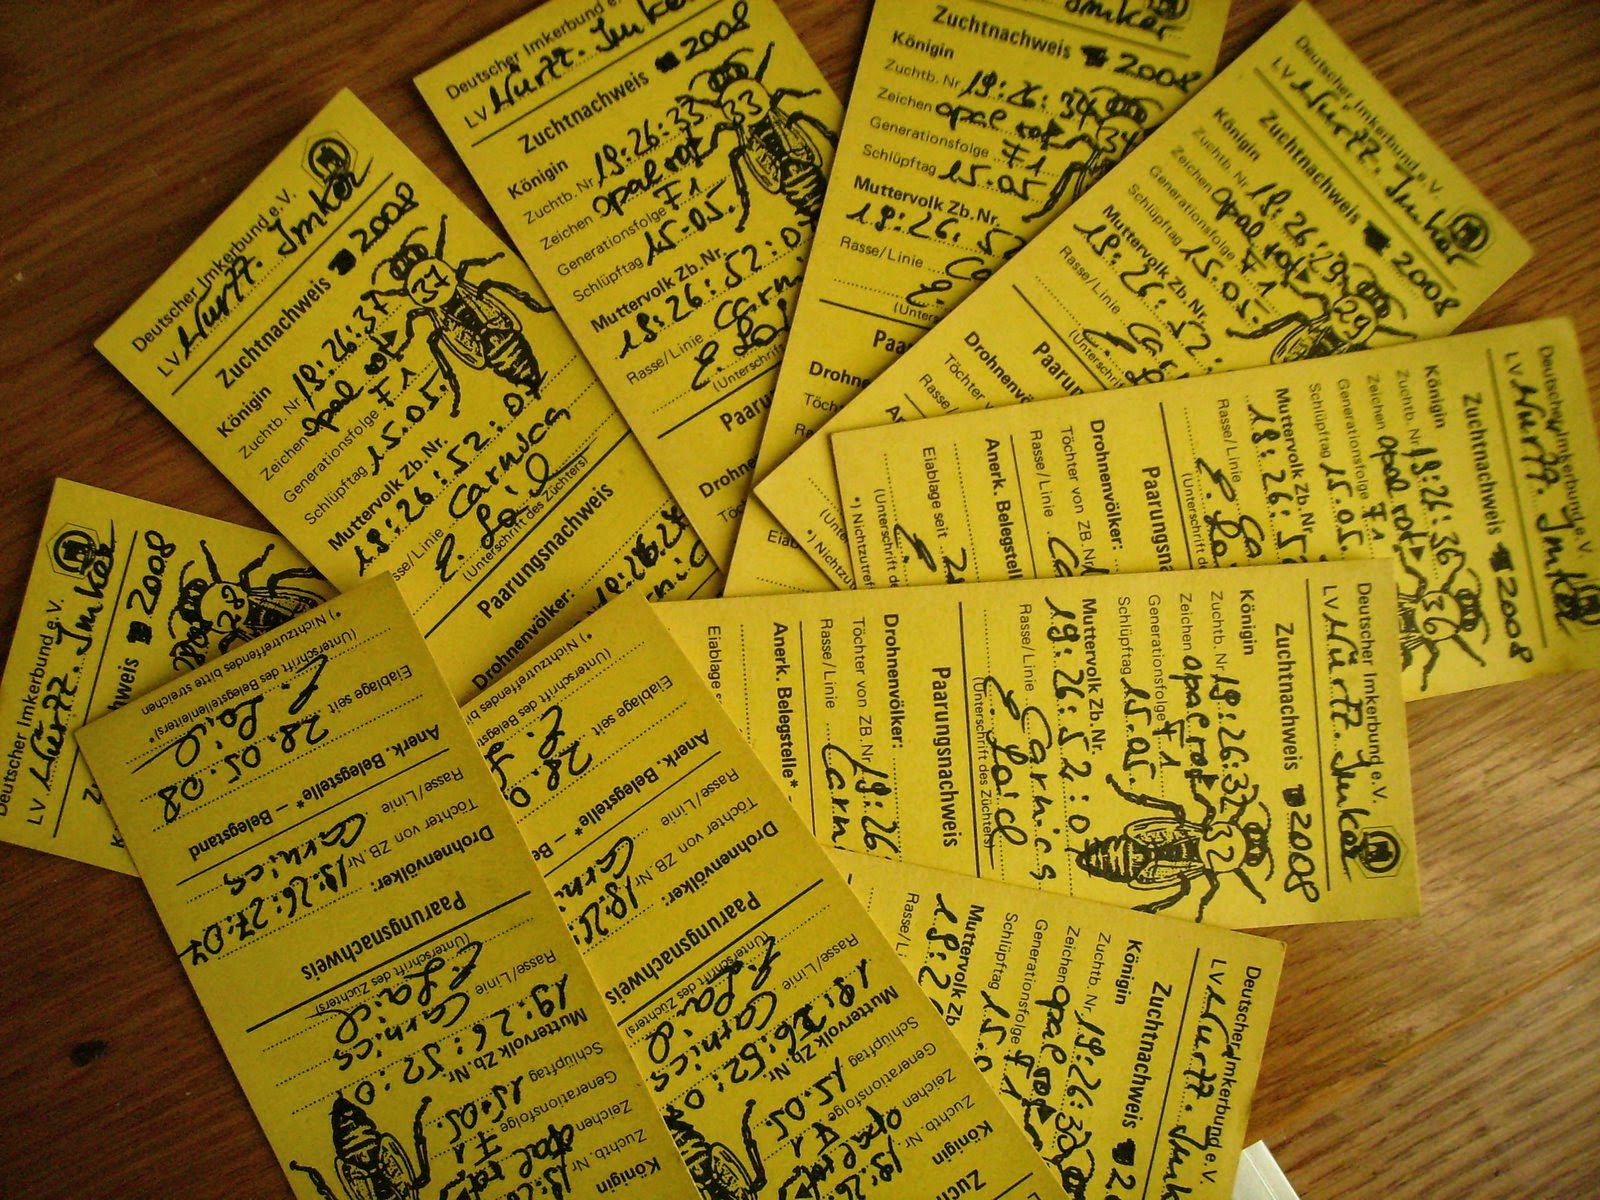 Deutscher Imkerbund e.V.
LV Württ. Imker
Zuchtnachweis 2008
Königin
Zuchtb. Nr 19:26:37
Zeichen opal rot
37
Generationsfolge F1
Schlüpftag 15.05.
Muttervolk Zb. Nr.
19:26:52:07
Rasse/Linie Carnica
(Unterschrift des Züchters)
Paarungsnachweis
Drohnenvölker:
Deutscher Imkerbund e.
LV Württ. Imker
Zuchtnachweis 2008
Königin
Zuchtb. Nr 19:26:33
Zeichen opal rot
33
Generationsfolge F1
Schlüpftag 15.05.
Muttervolk Zb. Nr.
19:26:52:07
Rasse/Linie Carni
(Unterschrift
Paarun
Drohnen
Imker
Zuchtnachweis 2008
Königin
Zuchtb. Nr 19:26:34
Zeichen opal rot
34
Generationsfolge F1
Schlüpftag 15.05
Muttervolk Zb. Nr.
19:26:5
Rasse/Linie Ca
(Unters
Paa
Drohne
Töch
Deutscher Imkerbund e.V.
LV Württ. Imker
Zuchtnachweis 2008
Königin
Zuchtb. Nr 19:26:29
Zeichen opal rot
29
Generationsfolge F1
Schlüpftag 15.05.
Muttervolk Zb. Nr.
19:26:52:
Rasse/Linie Car
(Unterschrift
Paarung
Drohnenvölker
Töchter von
Rasse/Lin
Deutscher Imkerbund e.V.
LV Württ. Imker
Zuchtnachweis 2008
Königin
Zuchtb. Nr 19:26:36
Zeichen opal rot
36
Generationsfolge F1
Schlüpftag 15.05.
Muttervolk Zb. Nr.
19:26:5
Rasse/Linie Ca
(Unterschrift
Paarungsna
Drohnenvölker:
Töchter von ZB.N
Rasse/Linie Ca
Anerk. Belegstell
Eiablage seit 2
(Unterschrift de
*) Nichtzu
Deutscher Imkerbund e.V.
LV Württ. Imker
Zuchtnachweis 2008
Königin
Zuchtb. Nr 19:26:32
Zeichen opal rot
32
Generationsfolge F1
Schlüpftag 15.05.
Muttervolk Zb. Nr.
19:26:52:0
Rasse/Linie Carnica
(Unterschrift des Züchters)
Paarungsnachweis
Drohnenvölker:
Töchter von ZB.Nr 19:26
Rasse/Linie Carn
Anerk. Belegstelle* -
Eiablage seit
Deutscher Imkerbund e.V.
LV Württ. Imk
Zuchtnachweis 2
Königin
Zuchtb. Nr. 19:26:30
Zeichen opal rot
30
Generationsfolge F1
Schlüpftag 15.0
Muttervolk Zb
19:2
Rasse/L
Deutscher Imkerbund e.V.
LV Württ. Imker
2008
28
Königin
Zuchtb. Nr 19:26
Zeichen opal rot
Generationsfolge F1
Schlüpftag 15.05.
Muttervolk Zb. Nr.
19:26:52:0
Rasse/Linie Carnica
(Unterschrift des Züchters)
Paarungsnachweis
Drohnenvölker:
Töchter von ZB.Nr 19:26:27:07
Rasse/Linie Carnica
Anerk. Belegstelle* – Belegstand
Eiablage seit 28.05.08
(Unterschrift des Belegstellenleiters)*
*) Nichtzutreffendes bitte streichen
Zuc
Königin
Zuchtb. Nr 19:26
Zeichen opal rot
Generationsfolge F1
Schlüpftag 15.05.
Muttervolk Zb. Nr.
19:26:52:0
Rasse/Linie Carnica
(Unterschrift des Züchters)
Paarungsnachweis
Drohnenvölker:
Töchter von ZB.Nr 19:26
Rasse/Linie Carni
Anerk. Belegstelle* – Be
Eiablage seit 28.0
(Unterschrift des Belegst
*) Nichtzutreffendes bi